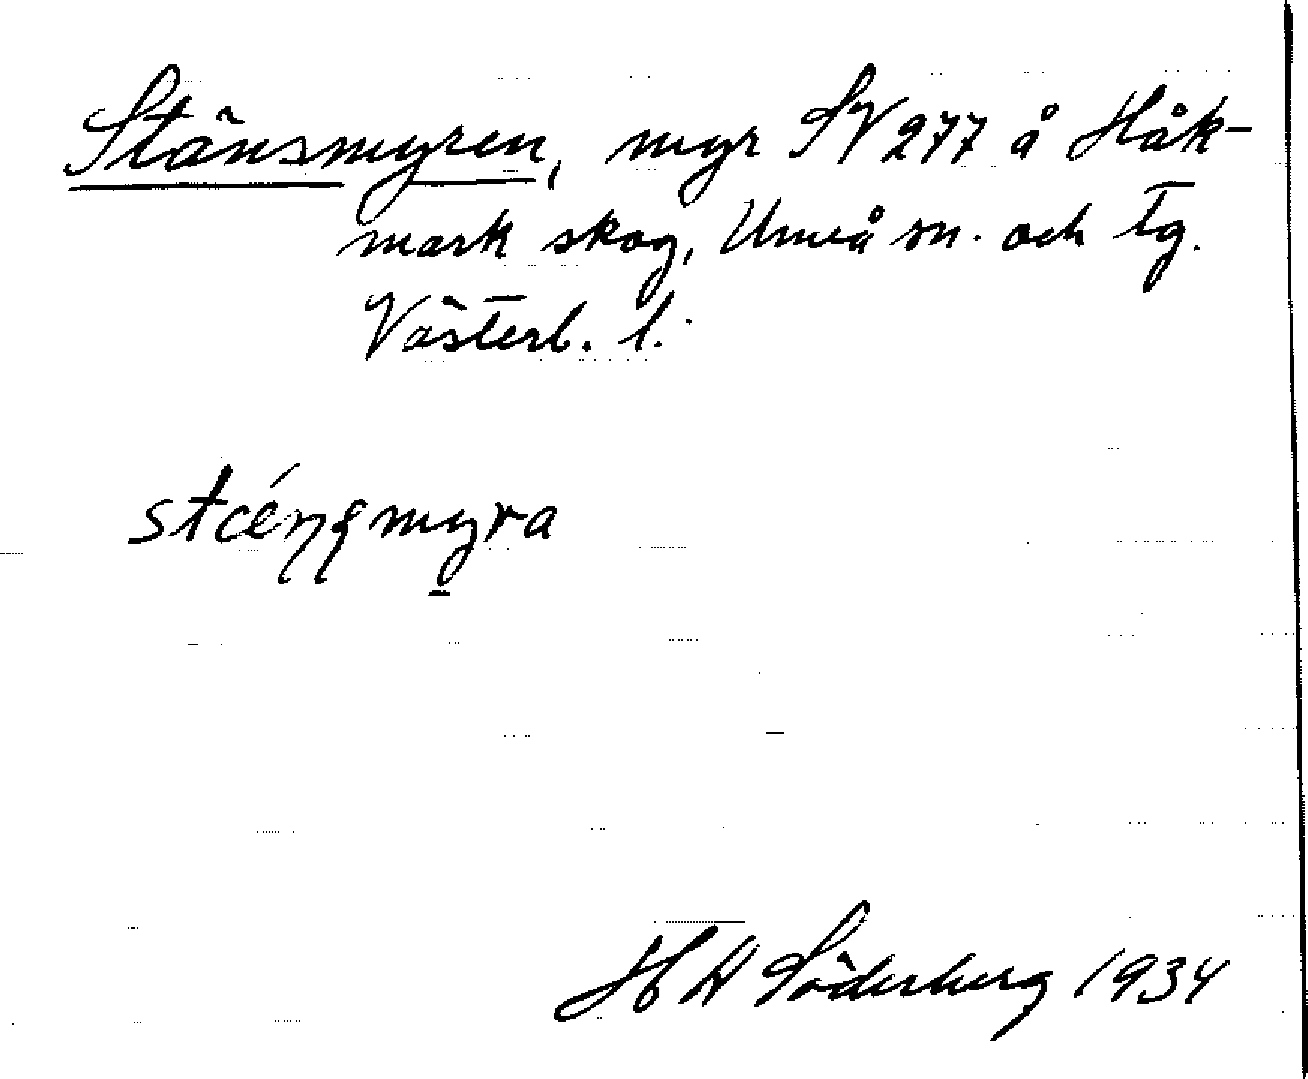 Stänsmyren, myr SV 277 å Håk-
mark skog, Umeå sn. och tg.
Västerb. l.
H W Söderberg 1934